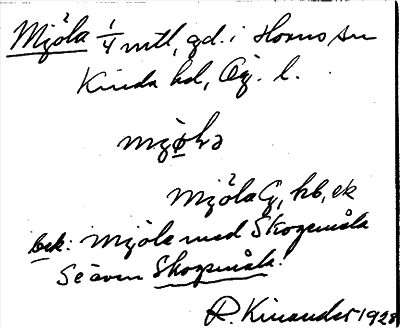 Mjöla 1/4 mtl, gd. i Horns sn
Kinda hd, Ög. l.
mjø̱lɂ
Mjöla G, kb, ek
bek: Mjöla med Skogsmåla
Se även Skogsmåla!
R. Kinander 1928